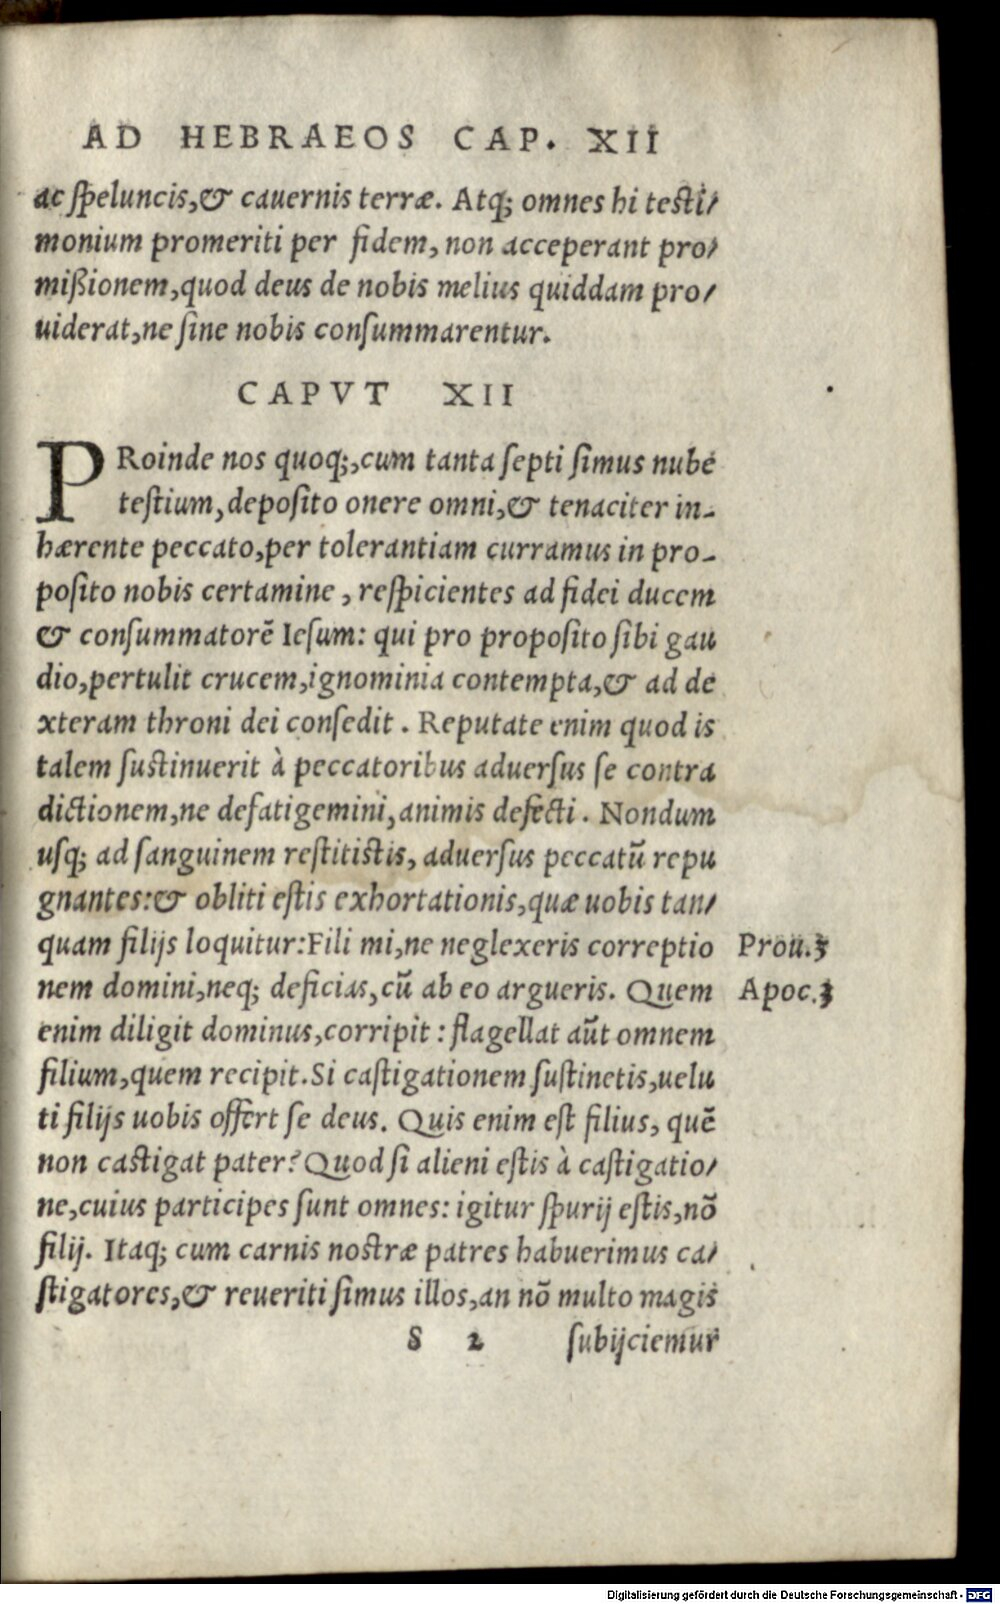 AD HEBRAEOS CAP. XII
ac speluncis,& cauernis terræ. Atq; omnes hi testi/
monium promeriti per fidem, non acceperant pro/
mißionem,quod deus de nobis melius quiddam pro/
uiderat,ne sine nobis consummarentur.
CAPVT XII
PRoinde nos quoq;,cum tanta septi simus nube
testium,deposito onere omni,& tenaciter in-
hærente peccato,per tolerantiam curramus in pro-
posito nobis certamine, respicientes ad fidei ducem
& consummatorẽ Iesum: qui pro proposito sibi gau
dio,pertulit crucem,ignominia contempta,& ad de
xteram throni dei consedit. Reputate enim quod is
talem sustinuerit à peccatoribus aduersus se contra
dictionem,ne defatigemini,animis defecti. Nondum
usq; ad sanguinem restitistis, aduersus peccatũ repu
gnantes:& obliti estis exhortationis,quæ uobis tan/
quam filijs loquitur:Fili mi,ne neglexeris correptio Prou.3
nem domini,neq; deficias,cũ ab eo argueris. Quem Apoc.3
enim diligit dominus,corripit: flagellat aũt omnem
filium,quem recipit.Si castigationem sustinetis,uelu
ti filijs uobis offert se deus. Quis enim est filius, quẽ
non castigat pater? Quod si alieni estis à castigatio/
ne,cuius participes sunt omnes: igitur spurij estis,nõ
filij. Itaq; cum carnis nostræ patres habuerimus ca/
stigatores,& reueriti simus illos,an nõ multo magis
S 2 subijciemur
Digitalisierung gefördert durch die Deutsche Forschungsgemeinschaft - DFG